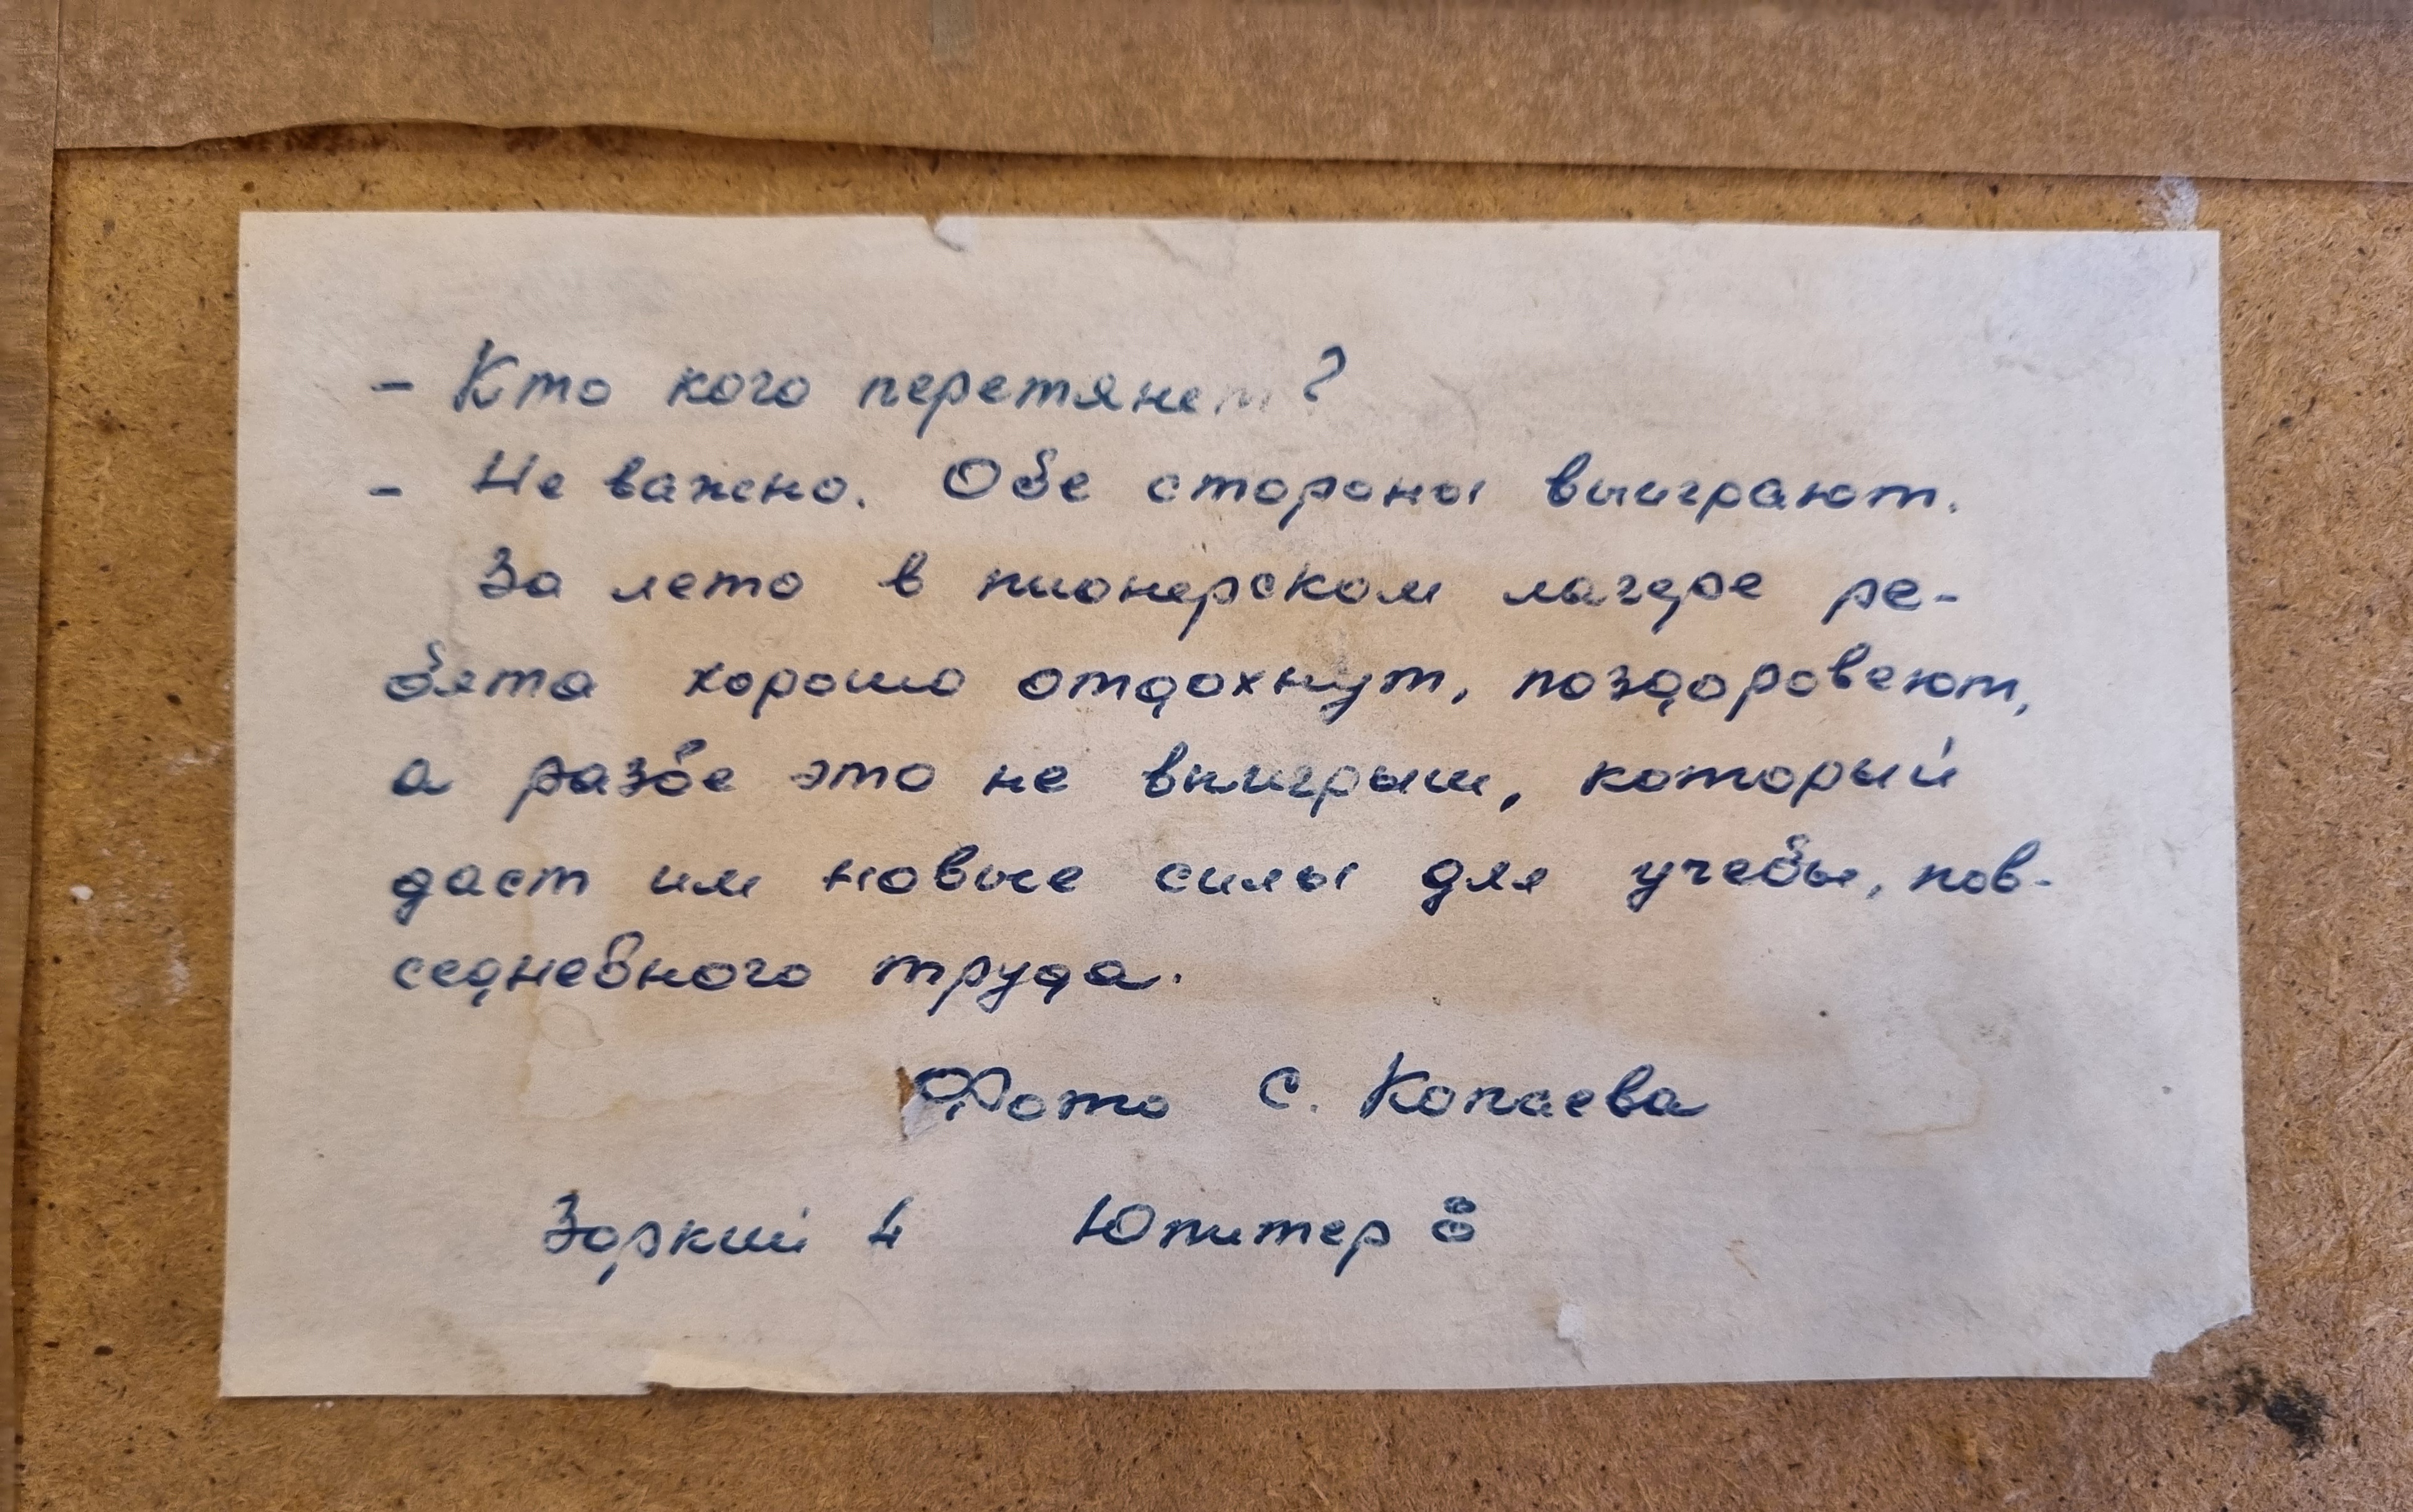 - Кто кого перетянет?
- Не важно. Обе стороны выиграют.
За лето в пионерском лагере ре-
бята хорошо отдохнут, поздоровеют,
а разве это не выигрыш, который
даст им новые силы для учебы, пов-
седневного труда.
Фото С. Копаева
Зоркий 4 Юпитер 8